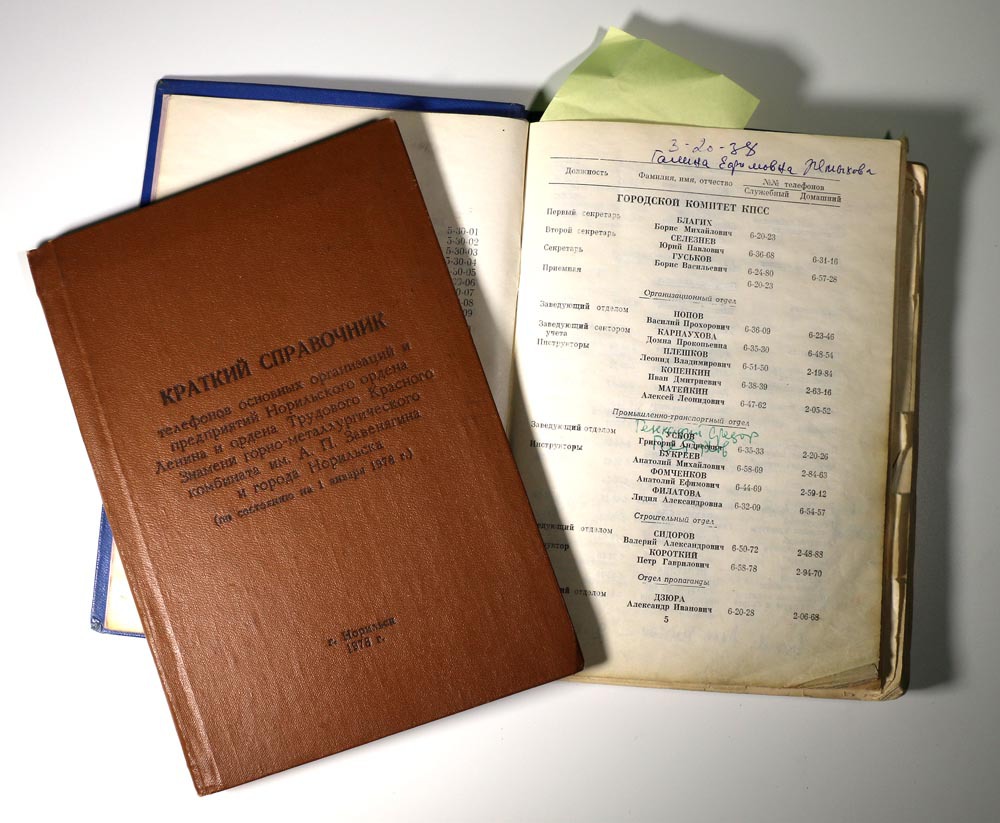 КРАТКИЙ СПРАВОЧНИК
телефонов основных организаций и
предприятий Норильского ордена
Ленина и ордена Трудового Красного
Знамени горно-металлургического
комбината им. А. П. Завенягина
и города Норильска
(по состоянию на 1 января 1976 г.)
г. Норильск
1976 г.
5-30-01
5-30-02
5-30-03
5-30-04
3-20-38
Галина Ефимовна
Должность Фамилия, имя, отчество №№ телефонов
Служебный Домашний
ГОРОДСКОЙ КОМИТЕТ КПСС
Первый секретарь БЛАГИХ
Борис Михайлович 6-20-23
Второй секретарь СЕЛЕЗНЕВ
Юрий Павлович 6-36-68 6-31-16
Секретарь ГУСЬКОВ
Борис Васильевич 6-24-80 6-57-28
Приемная 6-20-23
Организационный отдел
Заведующий отделом ПОПОВ
Василий Прохорович 6-36-09 6-23-46
Заведующий сектором КАРНАУХОВА
учета Домна Прокопьевна 6-35-30 6-48-54
Инструкторы ПЛЕШКОВ
Леонид Владимирович 6-51-50 2-19-84
КОПЕНКИН
Иван Дмитриевич 6-38-39 2-63-16
МАТЕЙКИН
Алексей Леонидович 6-47-62 2-05-52
Промышленно-транспортный отдел
Заведующий отделом УСКОВ
Григорий Андреевич 6-35-33 2-20-26
Инструкторы БУКРЕЕВ
Анатолий Михайлович 6-58-69 2-84-63
ФОМЧЕНКОВ
Анатолий Ефимович 6-44-69 2-59-12
ФИЛАТОВА
Лидия Александровна 6-32-09 6-54-57
Строительный отдел
ведующий отделом СИДОРОВ
Валерий Александрович 6-50-72 2-48-88
руктор КОРОТКИЙ
Петр Гаврилович 6-58-78 2-94-70
Отдел пропаганды
ий отделом ДЗЮРА
Александр Иванович 6-20-28 2-06-68
5